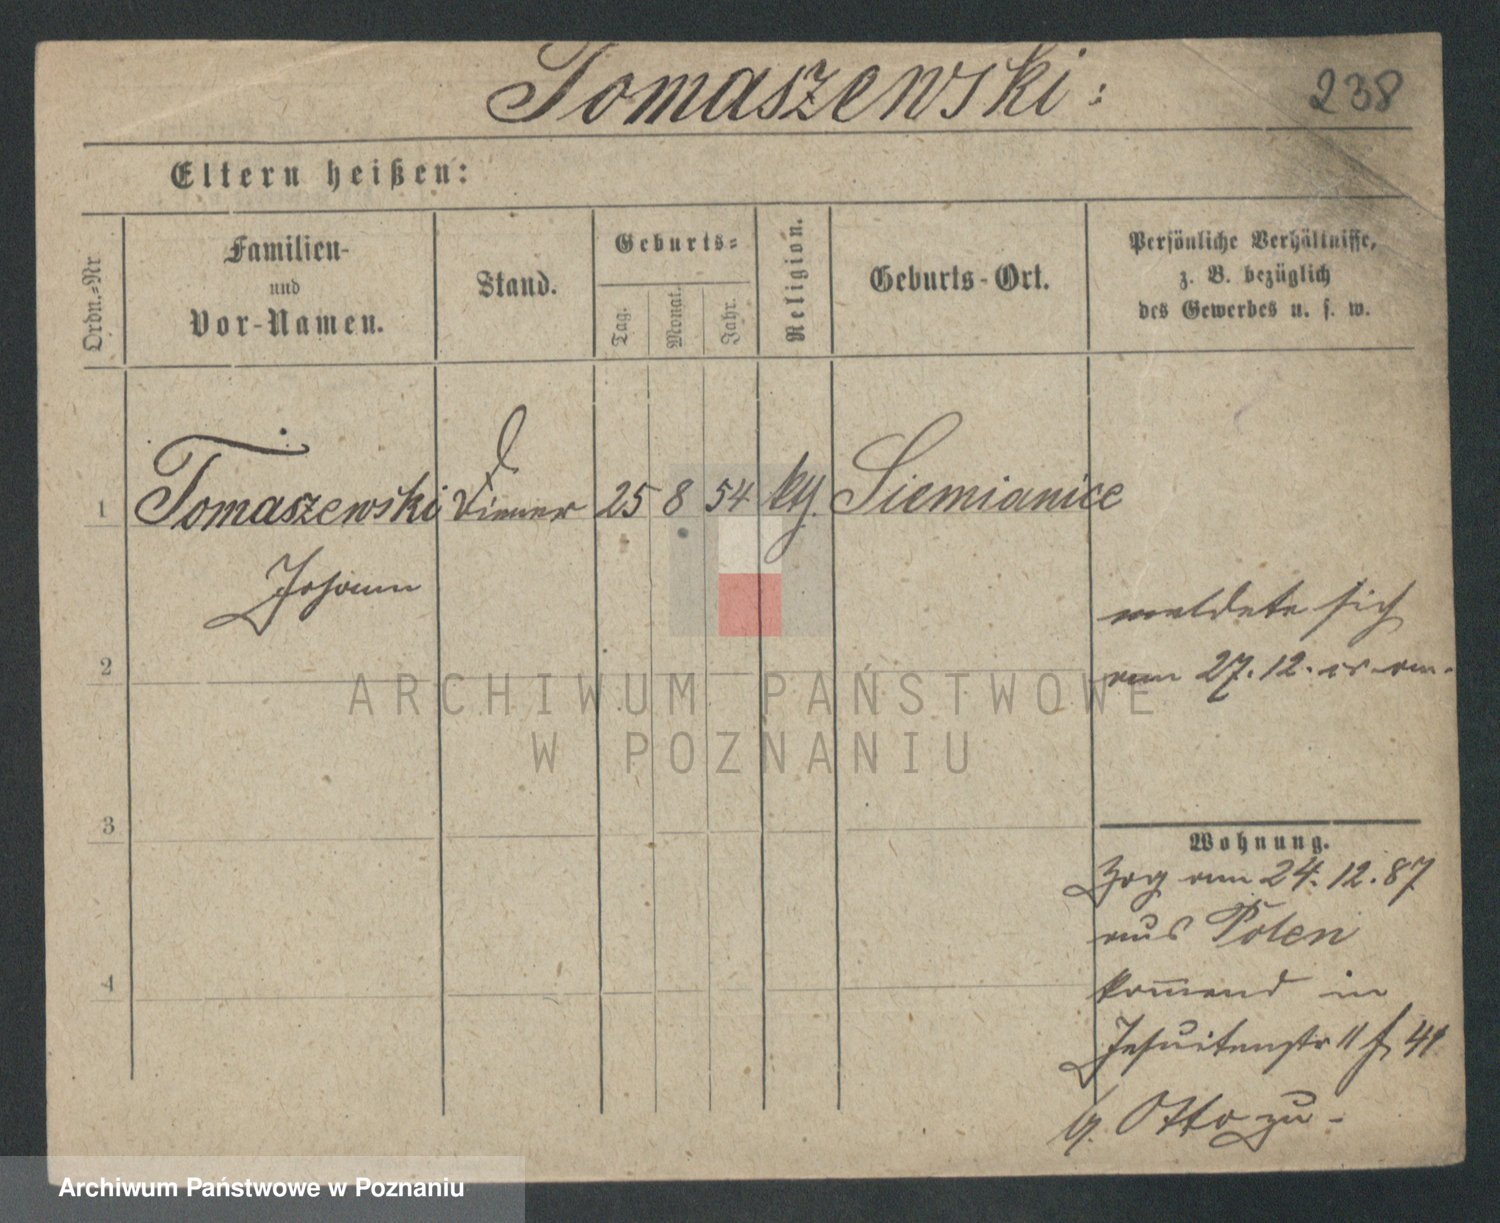 Tomaszewski:
238
Eltern heißen:
Ordn.-Nr
Familien-
und
Vor-Namen.
Stand.
Geburts-
Tag.
Monat.
Jahr.
Religion.
Geburts-Ort.
Persönliche Verhältnisse,
z. B. bezüglich
des Gewerbes u. s. w.
1
Tomaszewski
Diener
25
8
54
Siemianice
Johann
meldete sich
am 27.12. cr an.
2
ARCHIWUM PAŃSTWOWE
W POZNANIU
3
Wohnung.
Zog am 24.12.87
aus Polen
4
kommend in
Jesuitenstr 11
Otto zu.
Archiwum Państwowe w Poznaniu